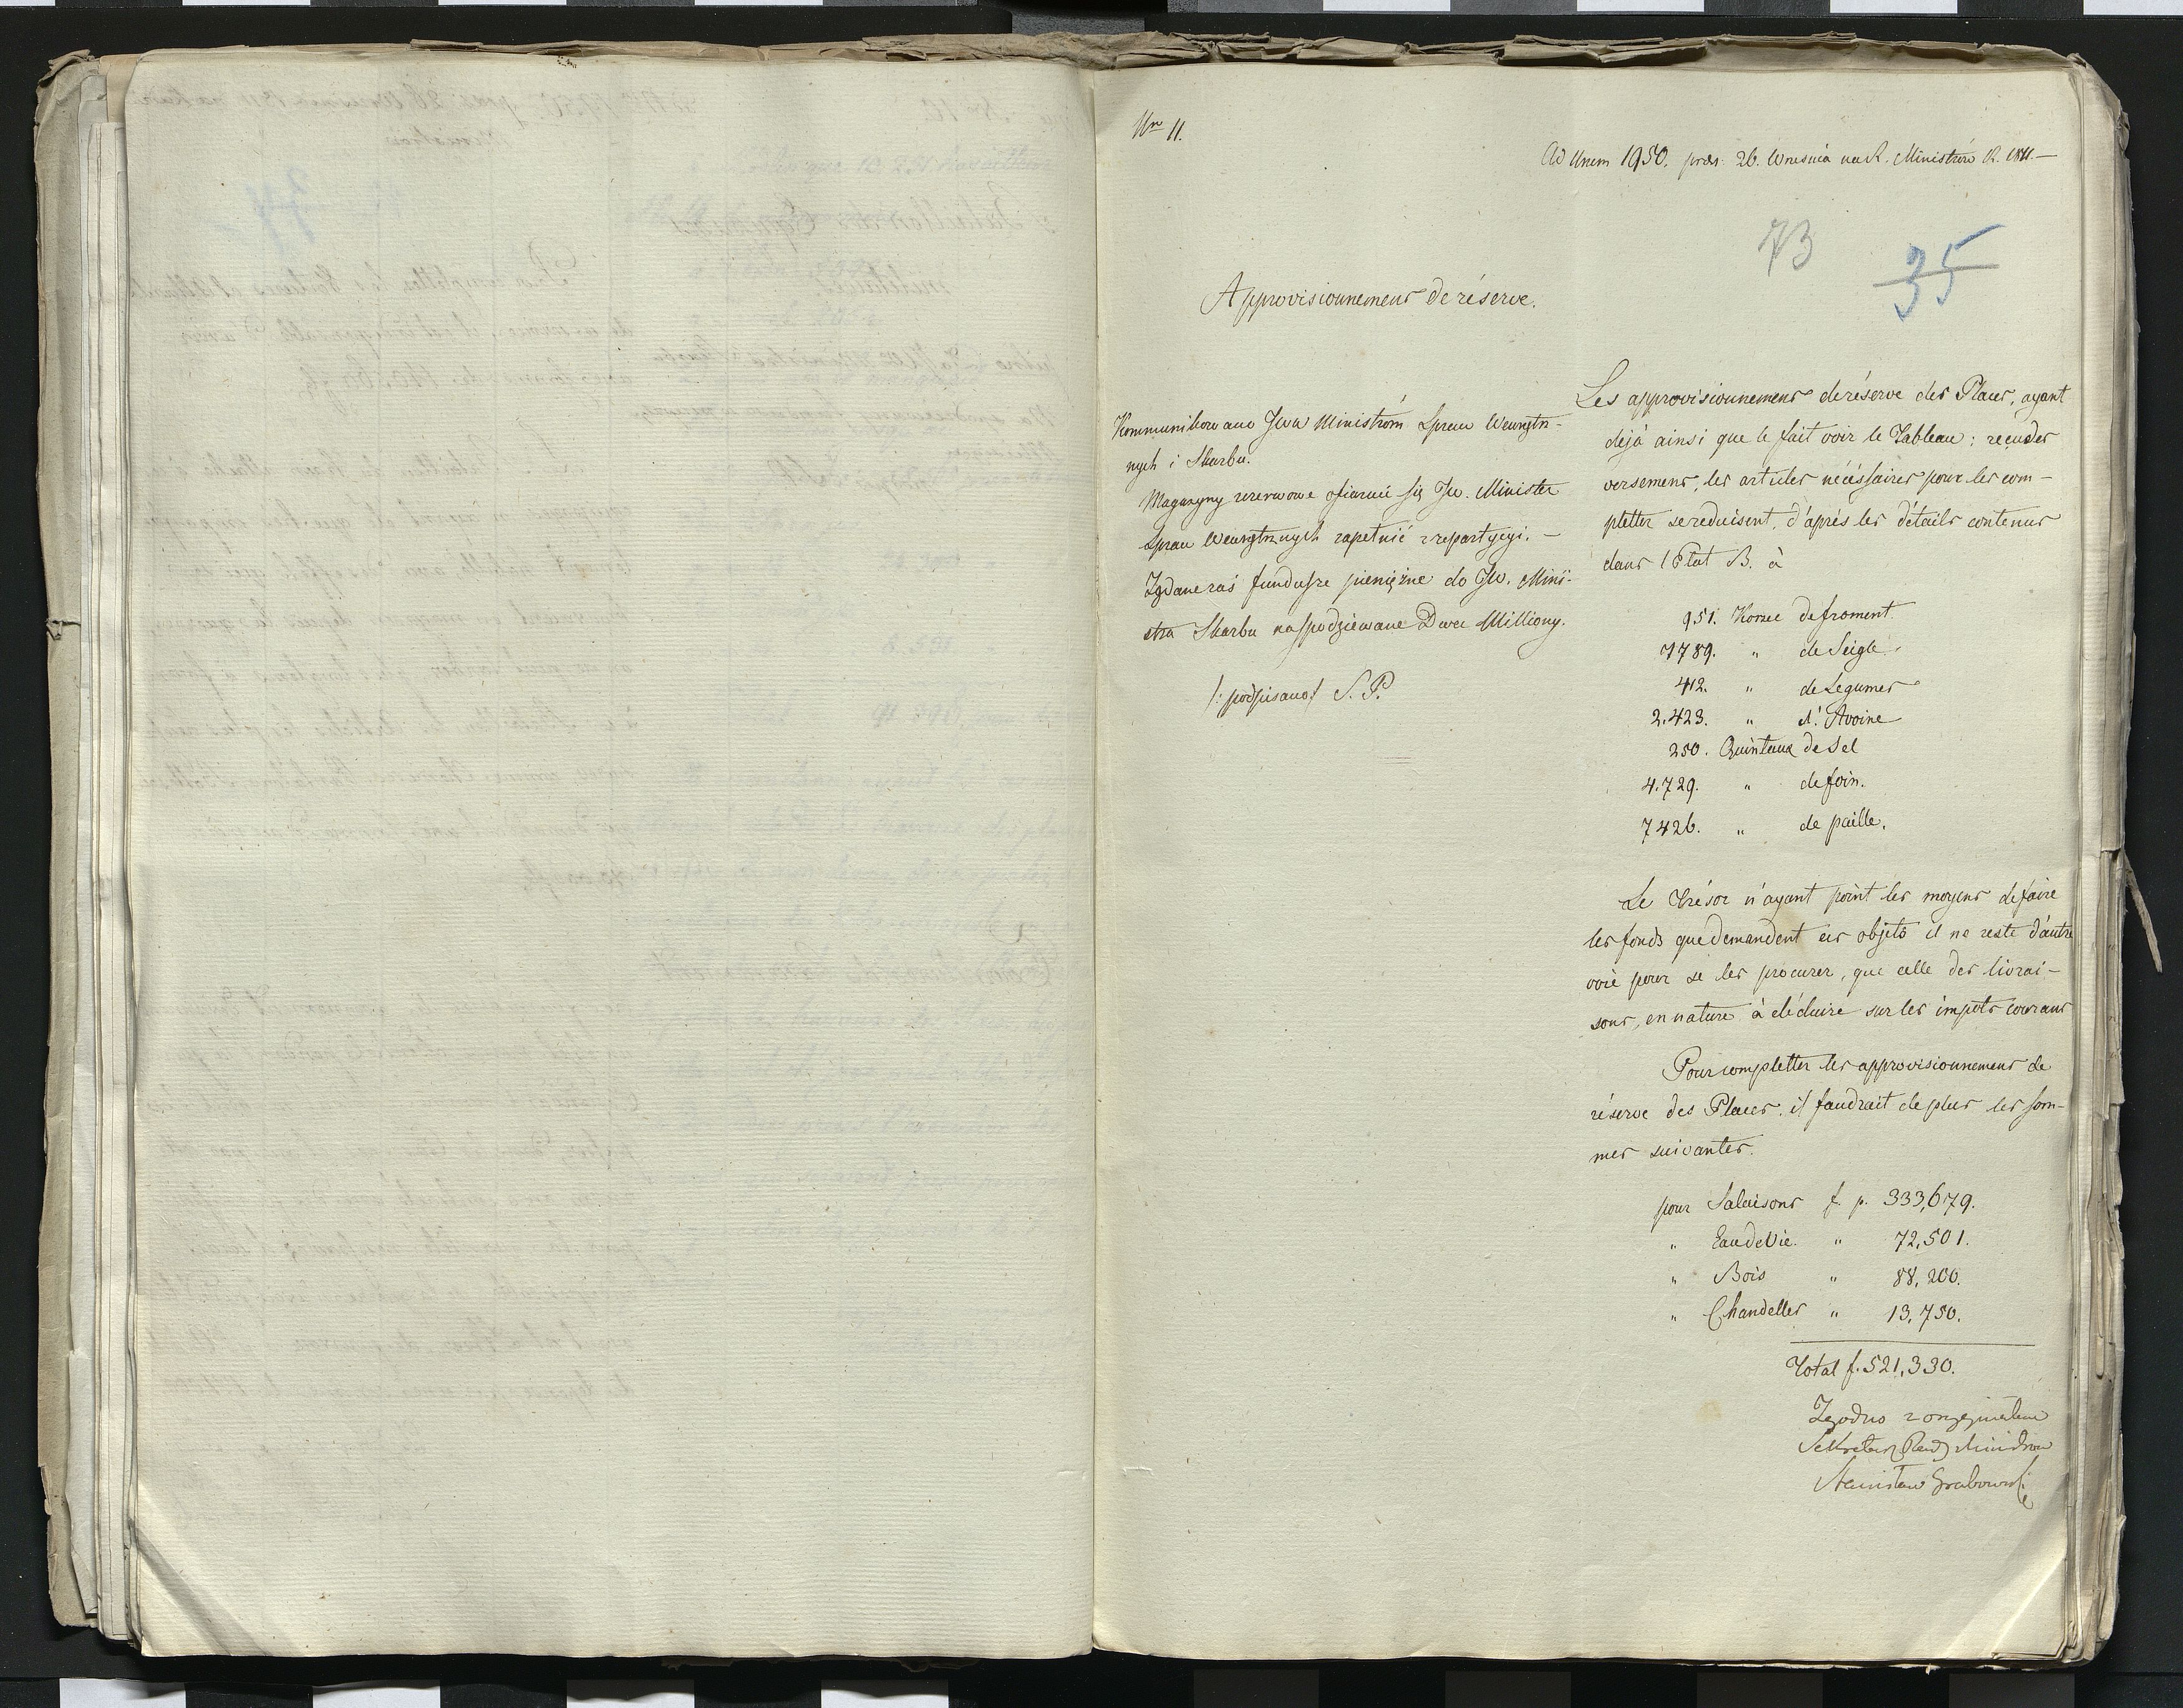 Nro 11.
Ad Num 1950. præs. 26. Wresnia na R. Ministrów R. 1811.—
73
35
Approvisionnemens de réserve.
Kommunikowano JWW Ministróm Spraw Wewnętrz-
nych i Skarbu.
Magazyny rezerwowe ofiaruie się JW. Minister
Spraw Wewnętrznych zapełnić z repartycyi. —
Żądane zaś fundusze pieniężne do JW. Mini-
stra Skarbu na spodziewane Dwa Milliony.
/: podpisano :/ S. P.
Les approvisionnemens de réserve des Places, ayant
déjà ainsi que le fait voir le Tableau: reçu des
versemens, les articles nécéssaires pour les com-
pletter se reduisent, d'après les détails contenus
dans l'Etat B. à
951. Korzec de froment.
1789. " de Seigle.
412. " de Legumes
2.423. " d'Avoine
250. Quintaux de Sel
4.729. " de foin.
7426. " de paille.
Le Trésor n'ayant point les moyens de faire
les fonds que demandent ces objets il ne reste d'autre
voie pour se les procurer, que celle des livrai-
sons, en nature à déduire sur les impots courans
Pour completter les approvisionnemens de
réserve des Places, il faudrait de plus les som-
mes suivantes.
pour Salaisons f. p. 333,679.
" Eau de Vie. " 72,501.
" Bois " 88,200.
" Chandelles " 13,750.
Total f. 521,330.
Zgodno z oryginałem
Sekretarz Rady Ministrów
Stanisław Grabowski